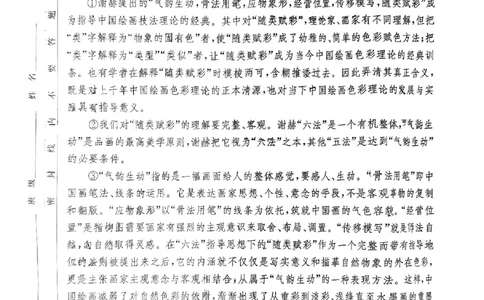 ①谢赫提出的“气韵生动,骨法用笔,应物象形,经营位置,传移模写,随类赋彩”成
为指导中国绘画技法理论的经典。其中对“随类赋彩”,理论家、画家有不同理解,但把
“类”字解释为“物象的固有色”者,使“随类赋彩”成了幼稚的、简单的色彩赋色方法;把
“类”字解释为“类型”“类似”者,让“随类赋彩”成为当今中国绘画色彩理论的经典训
条。也有学者在解释“随类赋彩”时模棱而可,含糊推诿过去。因此弄清其真正含义,
既是对上千年中国绘画色彩理论的正本清源,也对当下中国绘画色彩理论的发展与实
践具有指导意义。
②我们对“随类赋彩”的理解要完整、客观。谢赫“六法”是一个有机整体,“气韵生
动”是品画的最高美学原则,谢赫把它视为“六法”之本,其他“五法”是达到“气韵生动”
的必要条件。
③“气韵生动”指的是一幅画面给人的整体感觉,要感人、生动。“骨法用笔”即中
国画笔法、线条的运用。它是表达画家思想、个性、意念的手段,不是客观事物的复制
和翻版。“应物象形”以“骨法用笔”的线条为依托,筑就中国画的气色容貌。“经营位
置”是指构图需要画家有强烈的主观意识来取舍、布局、调置。“传移模写”就是师法自
然,向自然取得灵感。在“六法”指导思想下的“随类赋彩”作为一个完整而带有指导地
位的法则被提出来之后,它的内涵就不仅仅是写实意义和描摹自然物象的外在色彩,
更是主张画家主观意念与客观相结合,从属于“气韵生动”的一种表现方法。这样,中
国绘画减弱了对自然色彩的依附,渐渐出现了从重彩到淡彩、浅绛直至水墨画的重要
班级
姓名
密封线内不要答题